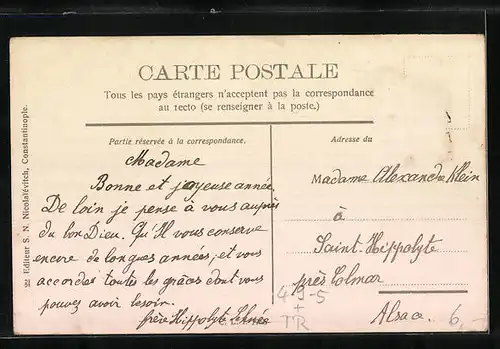 CARTE POSTALE
Tous les pays étrangers n'acceptent pas la correspondance
au recto (se renseigner à la poste.)
Partie réservée à la correspondance.
Adresse du
22 Editeur S. N. Nicolaïévitch, Constantinople.
Madame
Bonne et joyeuse année.
De loin je pense à vous auprès
du bon Dieu. Qu'Il vous conserve
encore de longues années, et vous
accorder toutes les grâces dont vous
pouvez avoir besoin.
frère Hippolyte
Madame Alexandre Klein
à
Saint-Hippolyte
près Colmar
Alsace.
4-5-5
+
TR
6,-